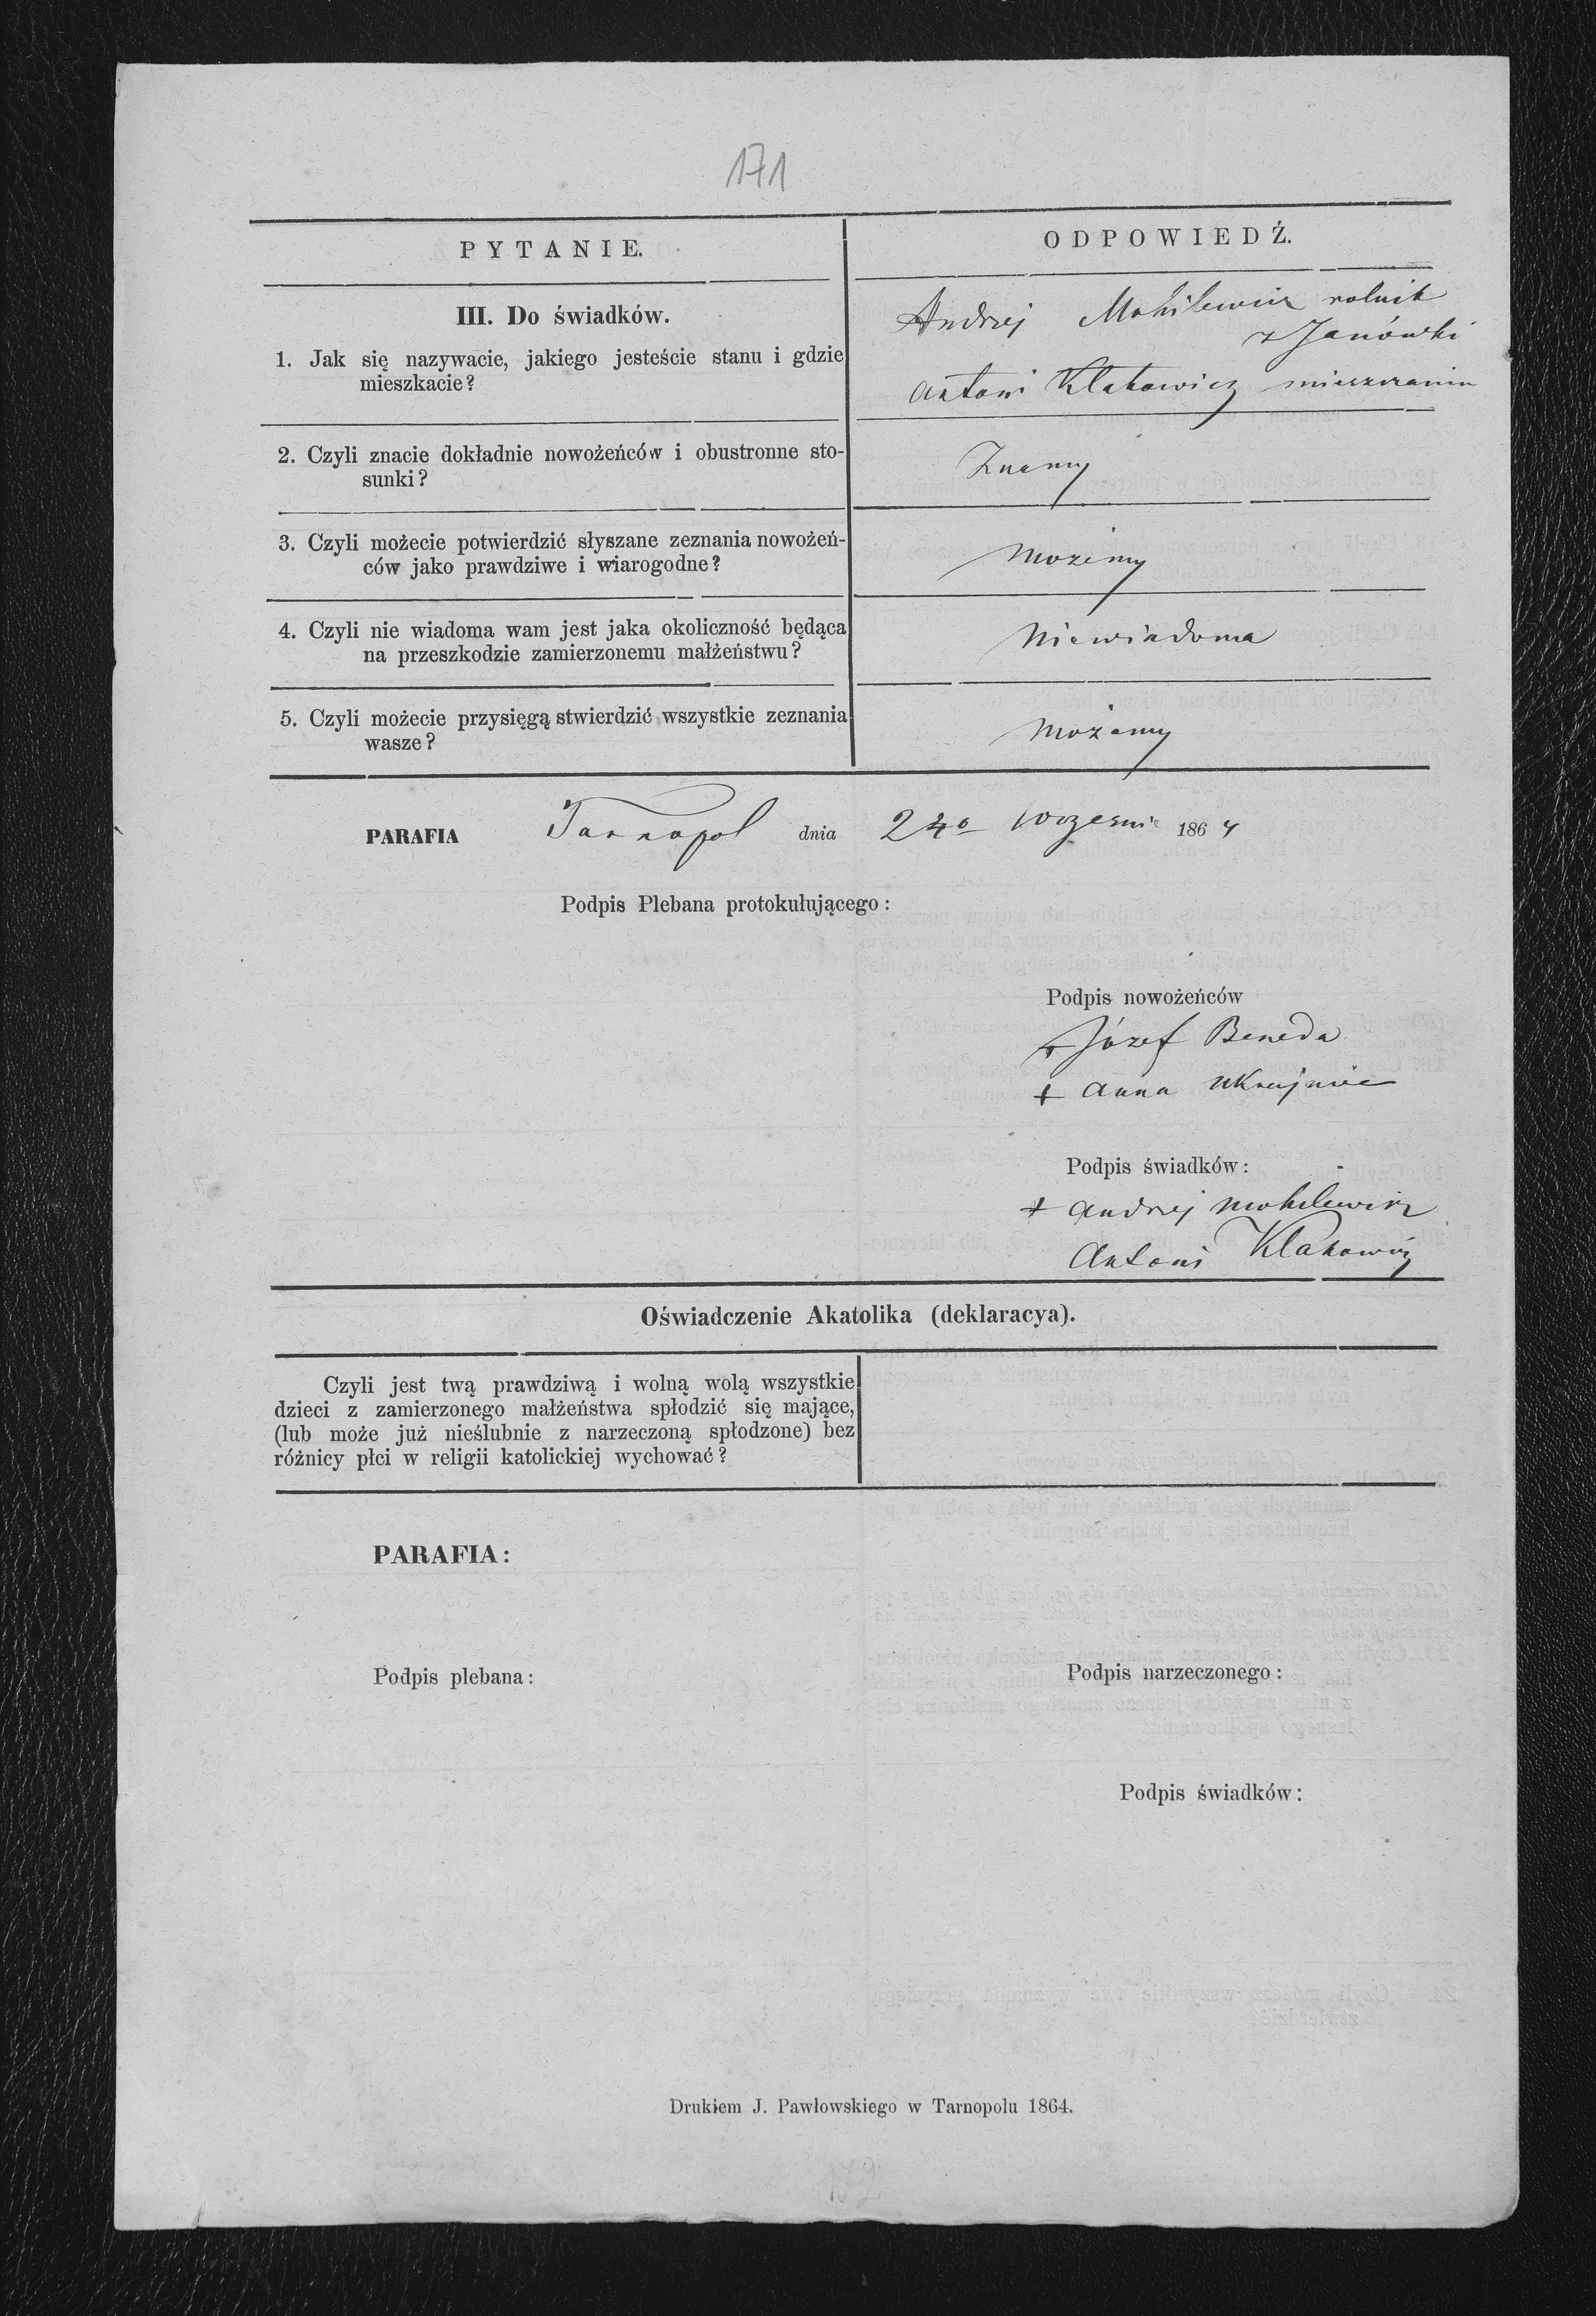 171
PYTANIE.
ODPOWIEDŹ.
III. Do świadków.
1. Jak się nazywacie, jakiego jesteście stanu i gdzie
mieszkacie?
Andrzej Mohilewicz rolnik
z Janówki
Antoni Klakowicz mieszczanin
2. Czyli znacie dokładnie nowożeńców i obustronne sto-
sunki?
Znamy
3. Czyli możecie potwierdzić słyszane zeznania nowożeń-
ców jako prawdziwe i wiarogodne?
możemy
4. Czyli nie wiadoma wam jest jaka okoliczność będąca
na przeszkodzie zamierzonemu małżeństwu?
Niewiadoma
5. Czyli możecie przysięgą stwierdzić wszystkie zeznania
wasze?
możemy
PARAFIA Tarnopol dnia 24o 1864
Podpis Plebana protokułującego:
Podpis nowożeńców
+ Józef Beneda
+ Anna
Podpis świadków:
+ Andrzej Mohilewicz
Antoni Klakowicz
Oświadczenie Akatolika (deklaracya).
Czyli jest twą prawdziwą i wolną wolą wszystkie
dzieci z zamierzonego małżeństwa spłodzić się mające,
(lub może już nieślubnie z narzeczoną spłodzone) bez
różnicy płci w religii katolickiej wychować?
PARAFIA:
Podpis plebana:
Podpis narzeczonego:
Podpis świadków:
Drukiem J. Pawłowskiego w Tarnopolu 1864.
172